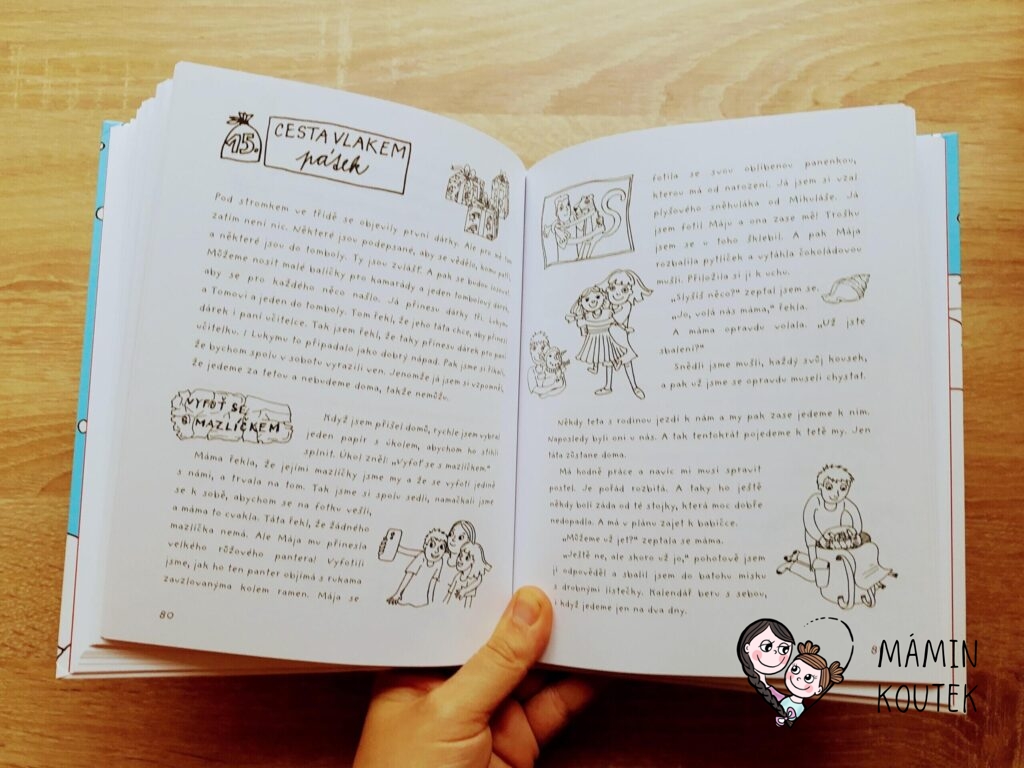 15.
CESTA VLAKEM
pátek
Pod stromkem ve třídě se objevily první dárky. Ale pro mě tam
zatím není nic. Některé jsou podepsané, aby se vědělo, komu patří,
a některé jsou do tomboly. Ty jsou zvlášť. A pak se budou losovat.
Můžeme nosit malé balíčky pro kamarády a jeden tombolový dárek,
aby se pro každého něco našlo. Já přinesu dárky tři. Lukymu
a Tomovi a jeden do tomboly. Tom řekl, že jeho táta chce, aby přinesl
dárek i paní učitelce. Tak jsem řekl, že taky přinesu dárek pro paní
učitelku. I Lukymu to připadalo jako dobrý nápad. Pak jsme si říkali,
že bychom spolu v sobotu vyrazili ven. Jenomže já jsem si vzpomněl,
že jedeme za tetou a nebudeme doma, takže nemůžu.
VYFOŤ SE
S MAZLÍČKEM
Když jsem přišel domů, rychle jsem vybral
jeden papír s úkolem, abychom ho stihli
splnit. Úkol zněl: „Vyfoť se s mazlíčkem.“
Máma řekla, že jejími mazlíčky jsme my a že se vyfotí jedině
s námi, a trvala na tom. Tak jsme si spolu sedli, namačkali jsme
se k sobě, abychom se na fotku vešli,
a máma to cvakla. Táta řekl, že žádného
mazlíčka nemá. Ale Mája mu přinesla
velkého růžového pantera! Vyfotili
jsme, jak ho ten panter objímá s rukama
zauzlovanýma kolem ramen. Mája se
80
fotila se svou oblíbenou panenkou,
kterou má od narození. Já jsem si vzal
plyšového sněhuláka od Mikuláše. Já
jsem fotil Máju a ona zase mě! Trošku
jsem se u toho šklebil. A pak Mája
rozbalila pytlíček a vytáhla čokoládovou
mušli. Přiložila si ji k uchu.
„Slyšíš něco?“ zeptal jsem se.
„Jo, volá nás máma,“ řekla.
A máma opravdu volala. „Už jste
sbalení?“
Snědli jsme mušli, každý svůj kousek,
a pak už jsme se opravdu museli chystat.
Někdy teta s rodinou jezdí k nám a my pak zase jedeme k nim.
Naposledy byli oni u nás. A tak tentokrát pojedeme k tetě my. Jen
táta zůstane doma.
Má hodně práce a navíc mi musí spravit
postel. Je pořád rozbitá. A taky ho ještě
někdy bolí záda od té stojky, která moc dobře
nedopadla. A má v plánu zajet k babičce.
„Můžeme už jet?“ zeptala se máma.
„Ještě ne, ale skoro už jo,“ pohotově jsem
jí odpověděl a sbalil jsem do batohu misku
s drobnými lístečky. Kalendář beru s sebou,
i když jedeme jen na dva dny.
MÁMIN
KOUTEK